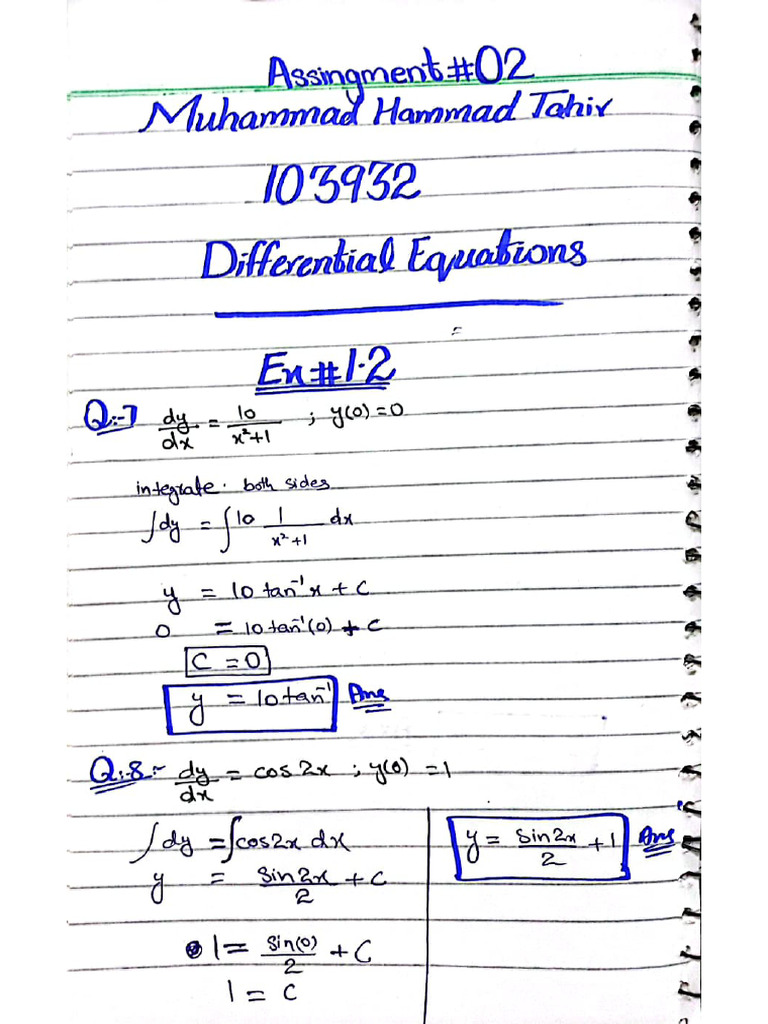 Assingment #02
Muhammad Hammad Tahir
103932
Differential Equations
Ex#1.2
Q:-7 dy/dx = 10/(x²+1) ; y(0)=0
integrate both sides
∫dy = ∫10 1/(x²+1) dx
y = 10 tan⁻¹x + C
0 = 10 tan⁻¹(0) + C
C = 0
y = 10 tan⁻¹ Ans
Q:-8:- dy/dx = cos 2x ; y(0) = 1
∫dy = ∫cos2x dx
y = Sin2x/2 + C
1 = Sin(0)/2 + C
1 = C
y = Sin2x/2 + 1 Ans